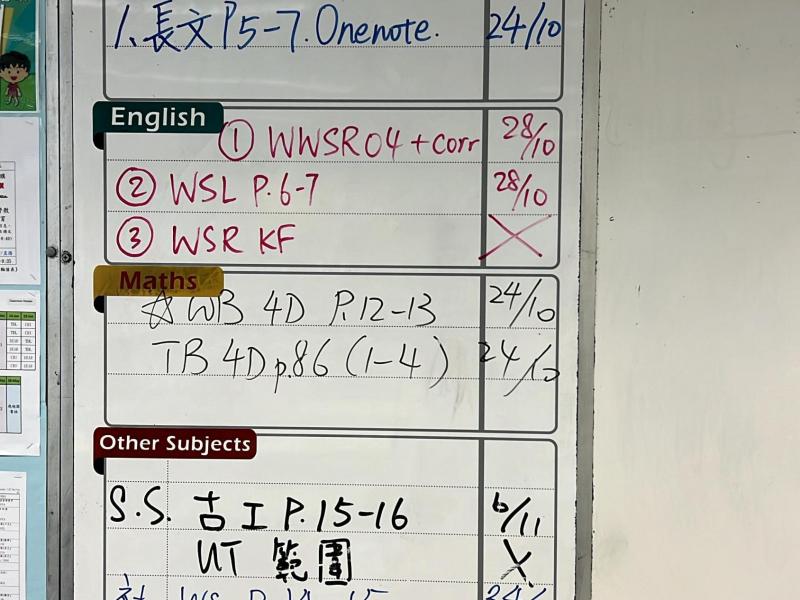 1. 長文 P5-7. Onenote. 24/10
English
① WWSR04 + corr 28/10
② WSL P.6-7 28/10
③ WSR KF X
Maths
☆ WB 4D P.12-13 24/10
TB 4D p.86 (1-4) 24/10
Other Subjects
S.S. 古工 P.15-16 6/11
UT 範圍 X